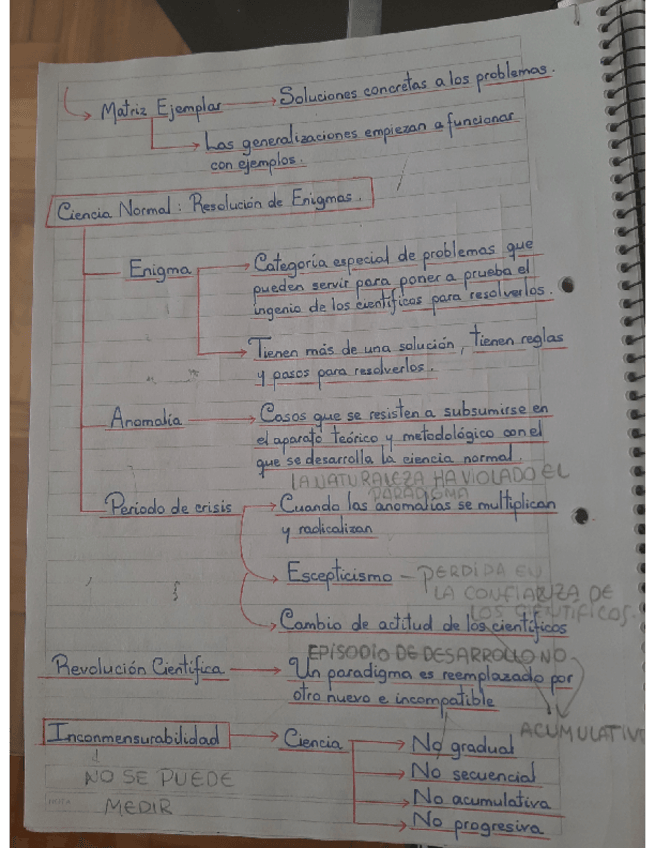 Matriz Ejemplar → Soluciones concretas a los problemas.
Las generalizaciones empiezan a funcionar
con ejemplos.
Ciencia Normal: Resolución de Enigmas.
Enigma → Categoría especial de problemas que
pueden servir para poner a prueba el
ingenio de los científicos para resolverlos.
Tienen más de una solución, tienen reglas
y pasos para resolverlos.
Anomalía → Casos que se resisten a subsumirse en
el aparato teórico y metodológico con el
que se desarrolla la ciencia normal.
LA NATURALEZA HA VIOLADO EL
PARADIGMA
Periodo de crisis → Cuando las anomalías se multiplican
y radicalizan
Escepticismo - PERDIDA EN
LA CONFIANZA DE
LOS CIENTÍFICOS.
Cambio de actitud de los científicos
EPISODIO DE DESARROLLO NO
Revolución Científica → Un paradigma es reemplazado por
otro nuevo e incompatible
ACUMULATIVO
Inconmensurabilidad → Ciencia → No gradual
No secuencial
NO SE PUEDE
MEDIR
No acumulativa
No progresiva